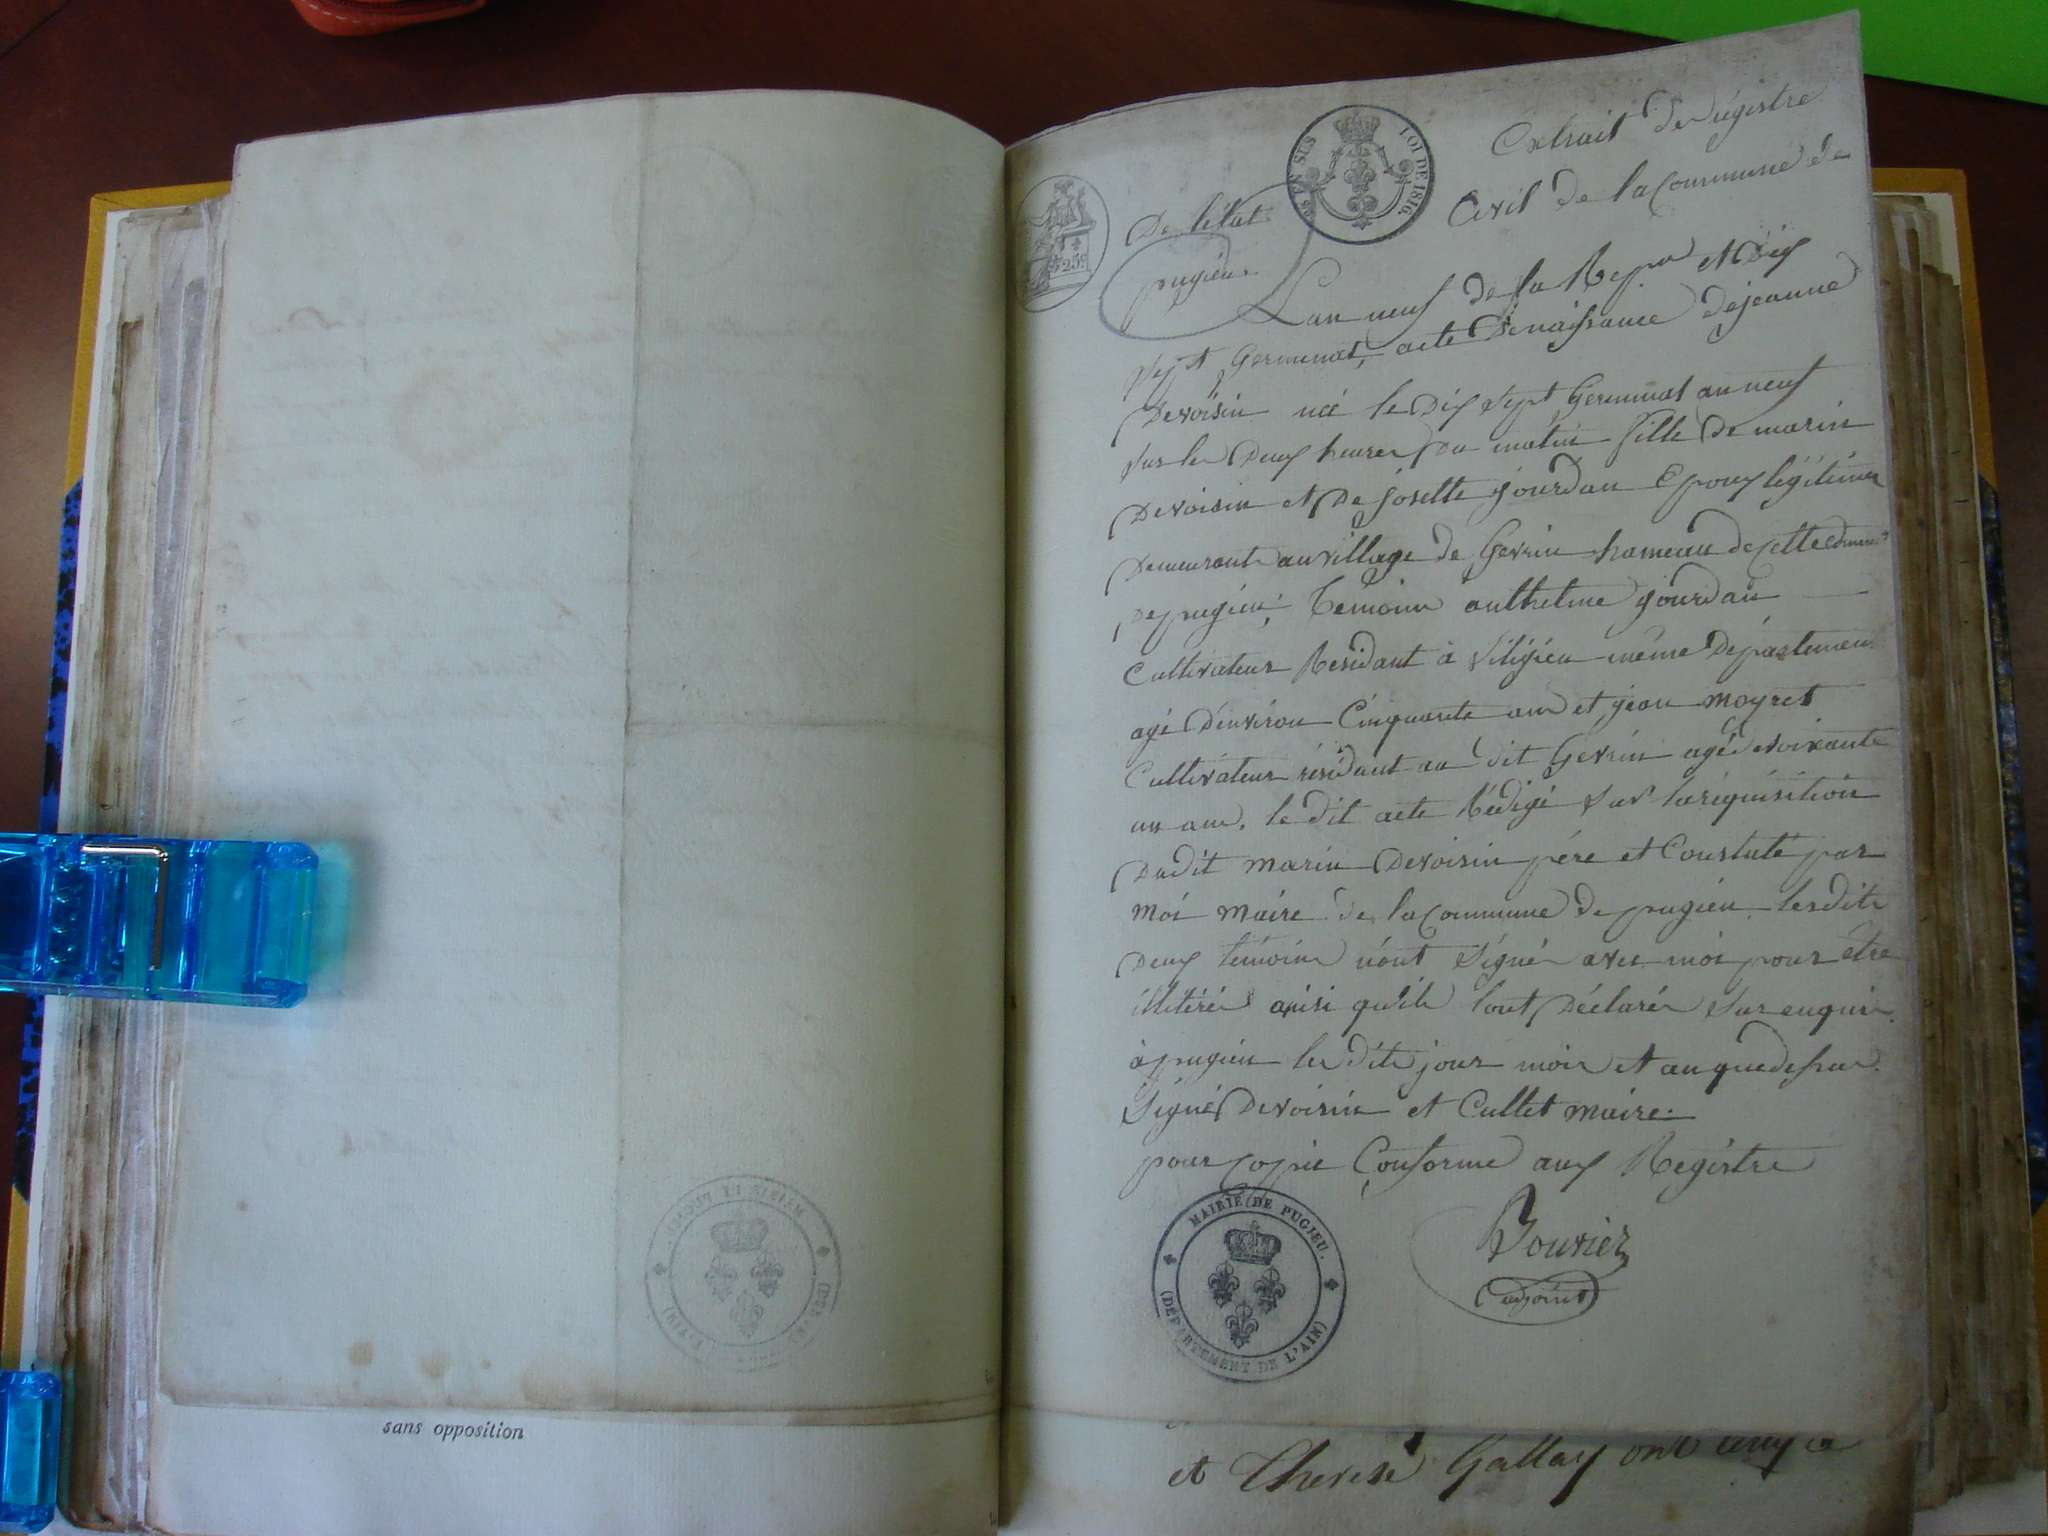 Extrait de Régistre
De l'état Civil de la Commune de
pugieu.
EN SUS
LOI DE 1816.
25c
L'an neuf de la Repue et Dix
Sept Germinal, acte de naissance de jeanne
Devoisin née le Dix Sept Germinal an neuf
Sur les Deux heures Du matin fille De marin
Devoisin et De josette jourdan Epoux légitimes
Demeurants au village de Gevrin hameau de cette comune
De pugieu; Témoins anthelme jourdan
Cultivateur Residant à Viligieu même Département
agé D'environ Cinquante ans et jean moyret
Cultivateur résidant au dit Gevrin agé Soixante
un ans. le dit acte Rédigé Sur la réquisition
Dudit marin Devoisin père et Constaté par
moi maire de la Commune de pugieu lesdits
Deux témoins n'ont Signés avec moi pour être
illitérés ainsi qu'ils l'ont Déclarés Sur enquis.
à pugieu les dits jour mois et an que dessus.
Signé Devoisin et Cullet maire.
pour Copie Conforme aux Régistre
MAIRIE DE PUGIEU.
(DÉPARTEMENT DE L'AIN)
Bouvier
adjoint
sans opposition
et Therese Gallay ont